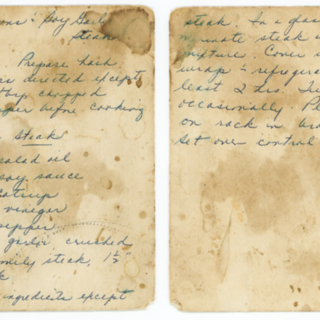 ons: Soy Garlic
Steak.
Prepare hash
as directed except
chopped
pper before cooking
Steak
salad oil
soy sauce
catsup
vinegar
pepper
garlic, crushed
family steak, 1½"
k
ingredients except
steak. In a glass
marinate steak in
mixture. Cover w
wrap & refrigera
least 2 hrs. Tu
occasionally. Pl
on rack in bro
set oven control